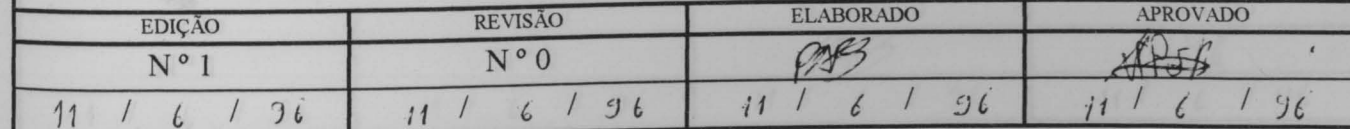 EDIÇÃO REVISÃO ELABORADO APROVADO
Nº 1 Nº 0
11 / 6 / 96 11 / 6 / 96 11 / 6 / 96 11 / 6 / 96